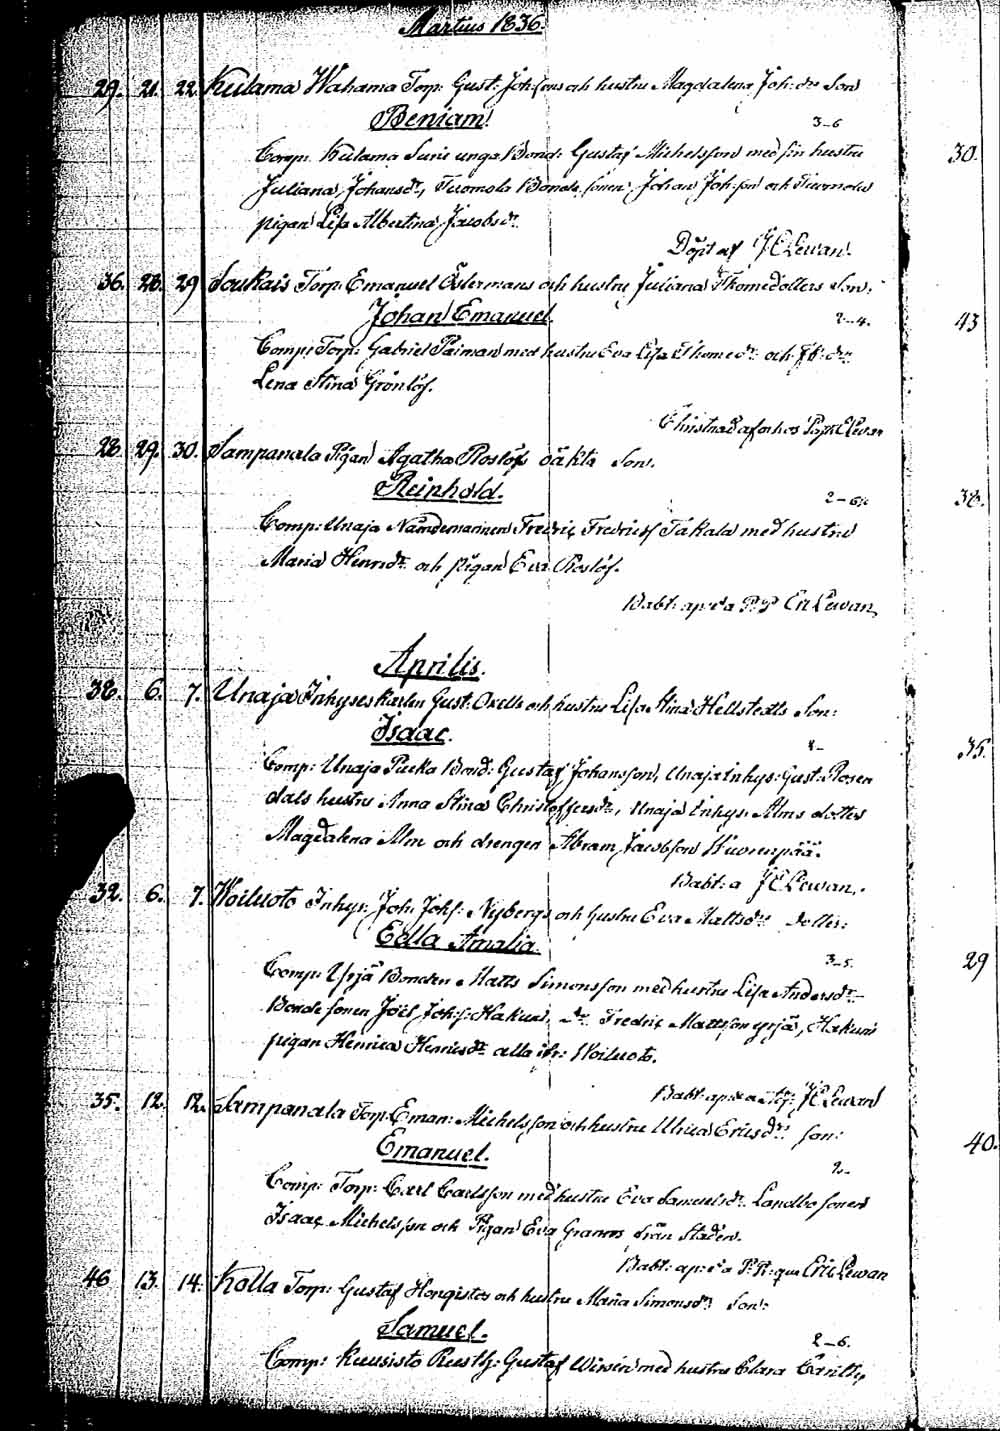 Martius 1836.
29. 21. 22. Kulama Wahama Torp: Gust: Johsons och hustru Magdalena Joh: dr Son
Beniam!
3-6
Comp: Kulama Surie unga Bond: Gustaf Michelsson med sin hustru 30.
Juliana Johansdr, Tuomola Bonde sonen Johan Joh:son och Tuomola
pigan Lisa Albertina Jacobsdr
Döpt af J C Lewan.
36. 28. 29 Soukais Torp: Emanuel Östermans och hustru Juliana Thomedotters Son:
Johan Emanuel.
2-4. 43
Comp: Torp: Gabriel Paiman med hustru Eva Lisa Thomedr och
Lena Stina Grönlöf.
Christnad af Lewan
28. 29. 30. Sampanala Pigan Agatha Roslöfs oäkta Son.
Reinhold.
2-6 38.
Comp: Unaja Nämdemannen Fredric Fredricss Takala med hustru
Maria Henrdr och pigan Eva Roslöf.
Babt: ap: a P: P Eric Lewan
Aprilis.
38. 6. 7. Unaja Inhyses karlen Gust: Oxells och hustru Lisa Stina Hellstedts Son:
Isaac.
4- 35.
Comp: Unaja Pucka Bond: Gustaf Johansson, Unaja Inhys: Gust: Rosen
dals hustru Anna Stina Christoffersdr, Unaja Inhys: Alms dotter
Magdalena Alm och drengen Abram Jacobsson Wuorenpää.
Babt: a J C Lewan.
32. 6. 7. Woiluoto Inhys: Joh: Johs: Nybergs och hustru Eva Mattsdrs dotter:
Edla Amalia.
3-5. 29
Comp: Yrjä Bonden Matts Simonsson med hustru Lisa Andersdr
Bonde sonen Joël Joh:s: Hakuni, Dr Fredric Mattsson yrjä, Hakuni
pigan Henrica Henricsdr alla ifr: Woiluoto.
Babt: ap: a J C Lewan
35. 12. 12. Sampanala Torp: Eman: Michelsson och hustru Ulrica Ericsdrs son:
Emanuel.
2- 40.
Comp: Torp: Carl Carlsson med hustru Eva Samuelsdr Landbo sonen
Isaac Michelsson och Pigan Eva Granroos från Staden.
Babt: ap: a P: P: qua Eric Lewan
46 13. 14. Kolla Torp: Gustaf Hongistos och hustru Maria Simonsdrs Son:
Samuel.
2-6.
Comp: Kuusisto Rusth: Gustaf Wirsén med hustru Clara